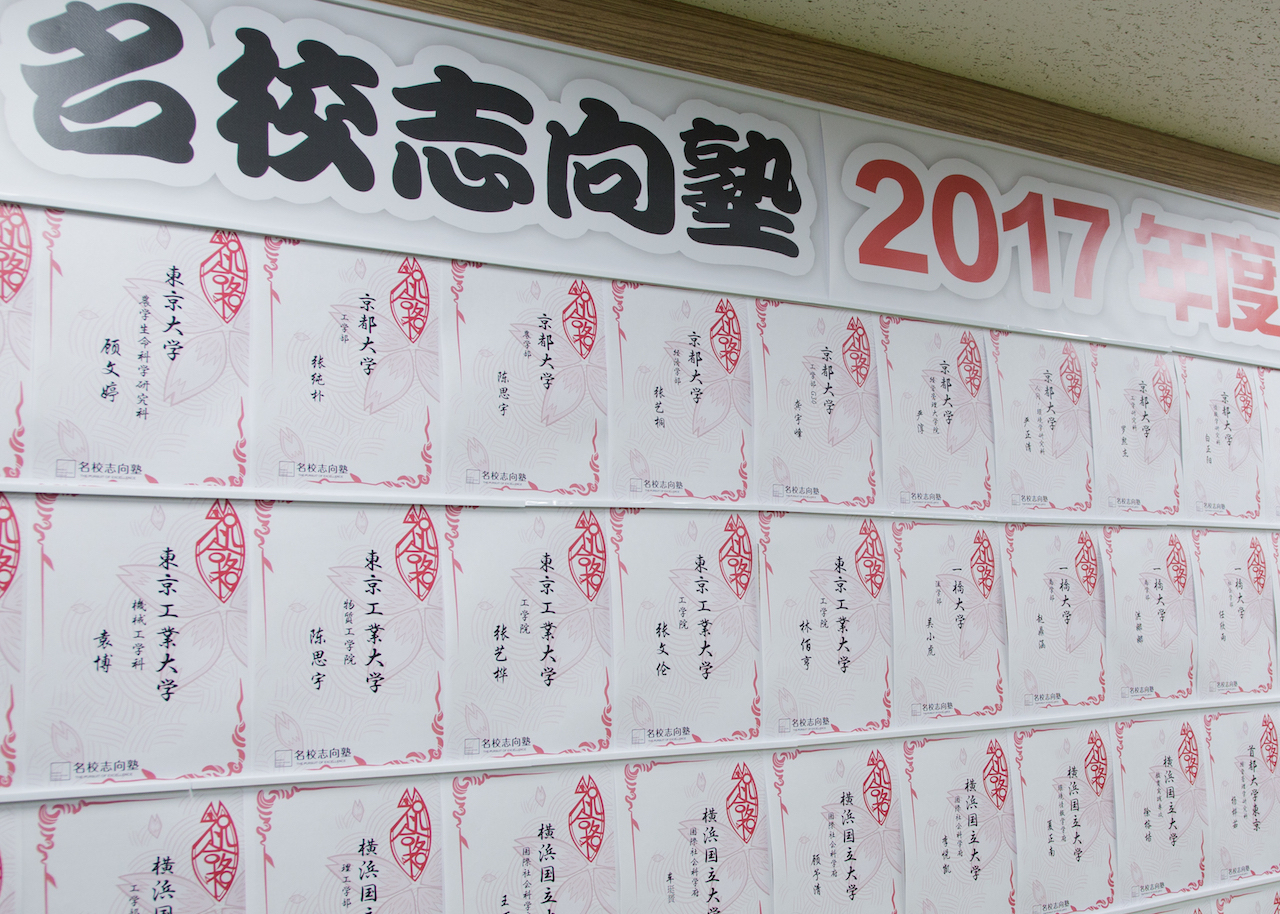 名校志向塾
2017年度
東京大学
農学生命科学研究科
顾文婷
名校志向塾
京都大学
工学部
张纯朴
名校志向塾
京都大学
農学部
陈思宇
名校志向塾
京都大学
経済学部
张艺桐
名校志向塾
京都大学
工学部
龚宇峰
名校志向塾
京都大学
経営管理大学院
严淳
名校志向塾
京都大学
严正清
名校志向塾
京都大学
工学研究科
名校志向塾
京都大学
名校志向塾
東京工業大学
機械工学科
袁博
名校志向塾
東京工業大学
物質工学院
陈思宇
名校志向塾
東京工業大学
工学院
张艺桦
名校志向塾
東京工業大学
工学院
张文伦
名校志向塾
東京工業大学
工学院
林佰亨
名校志向塾
一橋大学
吴小虎
名校志向塾
一橋大学
名校志向塾
一橋大学
名校志向塾
一橋大学
名校志向塾
横浜国
工学部
横浜国
理工学部
横浜国立
国際社会科学
横浜国立大学
国際社会科学府
横浜国立大学
国際社会科学府
顾予清
横浜国立大学
国際社会科学府
李悦凯
横浜国立大学
夏正南
名校志向塾
横浜国立大学
名校志向塾
首都大学東京
名校志向塾